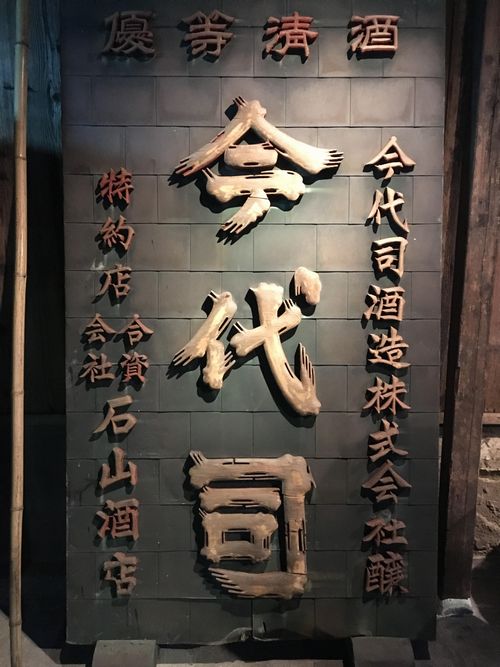 優等清酒
今代司酒造株式会社醸
今代司
特約店合資会社石山酒店